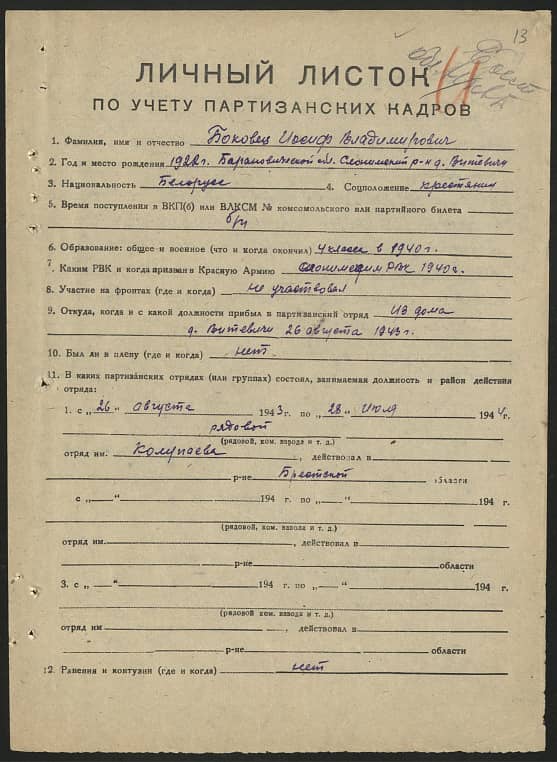 13
ЛИЧНЫЙ ЛИСТОК
ПО УЧЕТУ ПАРТИЗАНСКИХ КАДРОВ
1. Фамилия, имя и отчество Боковец Иосиф Владимирович
2. Год и место рождения 1922г. Барановической обл. Слонимский р-н д. Витевичи
3. Национальность Белорус 4. Соцположение крестянин
5. Время поступления в ВКП(б) или ВЛКСМ № комсомольского или партийного билета
б/п
6. Образование: общее и военное (что и когда окончил) 4 класса в 1940 г.
7. Каким РВК и когда призван в Красную Армию Слонимским РВК 1940г.
8. Участие на фронтах (где и когда) не участвовал
9. Откуда, когда и с какой должности прибыл в партизанский отряд Из дома
д. Витевичи 26 августа 1943 г.
10. Был ли в плену (где и когда) нет
11. В каких партизанских отрядах (или группах) состоял, занимаемая должность и район действия
отряда:
1. с „26“ августа 1943 г. по „28“ Июля 1944 г.
рядовой
(рядовой, ком. взвода и т. д.)
отряд им. Колупаева, действовал в
р-не Брестской области
с „—“ 194 г. по „—“ 194 г.
(рядовой, ком. взвода и т. д.)
отряд им. , действовал в
р-не области
3. с „—“ 194 г. по „—“ 194 г.
(рядовой, ком. взвода и т. д.)
отряд им , действовал в
р-не области
12. Ранения и контузии (где и когда) нет